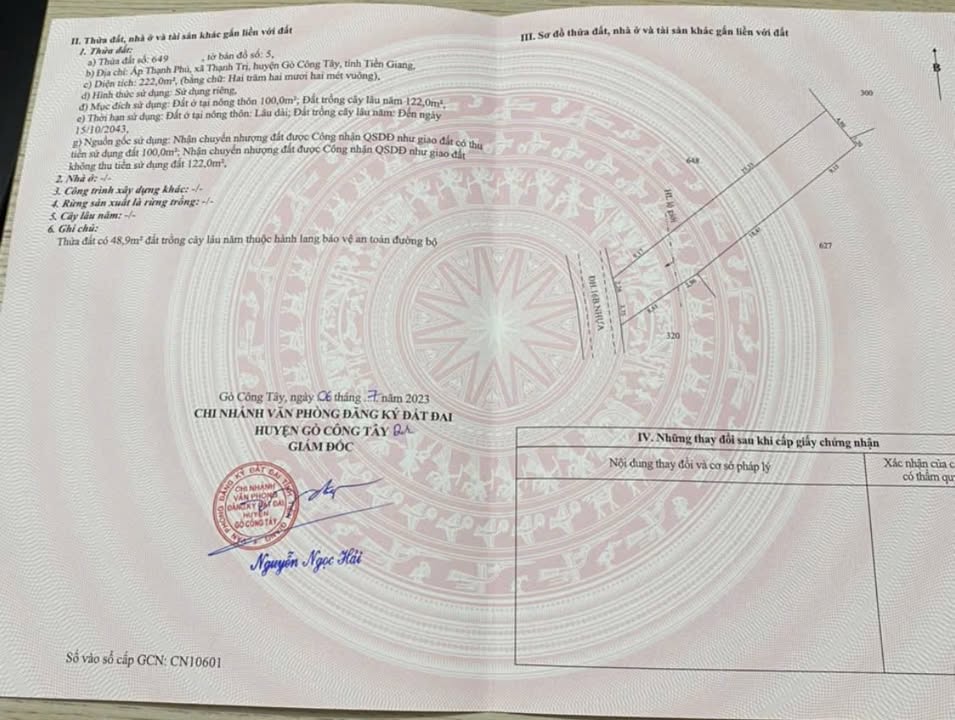 II. Thửa đất, nhà ở và tài sản khác gắn liền với đất
1. Thửa đất:
a) Thửa đất số: 649 , tờ bản đồ số: 5,
b) Địa chỉ: Ấp Thạnh Phú, xã Thạnh Trị, huyện Gò Công Tây, tỉnh Tiền Giang,
c) Diện tích: 222,0m², (bằng chữ: Hai trăm hai mươi hai mét vuông),
d) Hình thức sử dụng: Sử dụng riêng,
đ) Mục đích sử dụng: Đất ở tại nông thôn 100,0m²; Đất trồng cây lâu năm 122,0m²,
e) Thời hạn sử dụng: Đất ở tại nông thôn: Lâu dài; Đất trồng cây lâu năm: Đến ngày
15/10/2043,
g) Nguồn gốc sử dụng: Nhận chuyển nhượng đất được Công nhận QSDĐ như giao đất có thu
tiền sử dụng đất 100,0m²; Nhận chuyển nhượng đất được Công nhận QSDĐ như giao đất
không thu tiền sử dụng đất 122,0m²,
2. Nhà ở: -/-
3. Công trình xây dựng khác: -/-
4. Rừng sản xuất là rừng trồng: -/-
5. Cây lâu năm: -/-
6. Ghi chú:
Thửa đất có 48,9m² đất trồng cây lâu năm thuộc hành lang bảo vệ an toàn đường bộ
Gò Công Tây, ngày 06 tháng .7 năm 2023
CHI NHÁNH VĂN PHÒNG ĐĂNG KÝ ĐẤT ĐAI
HUYỆN GÒ CÔNG TÂY
GIÁM ĐỐC
CHI NHÁNH
VĂN PHÒNG
ĐĂNG KÝ ĐẤT ĐAI
HUYỆN
GÒ CÔNG TÂY
Nguyễn Ngọc Hải
Số vào sổ cấp GCN: CN10601
III. Sơ đồ thửa đất, nhà ở và tài sản khác gắn liền với đất
B
300
648
HL lộ giới
627
ĐH 16B NHỰA
320
IV. Những thay đổi sau khi cấp giấy chứng nhận
Nội dung thay đổi và cơ sở pháp lý
Xác nhận của c
có thẩm qu